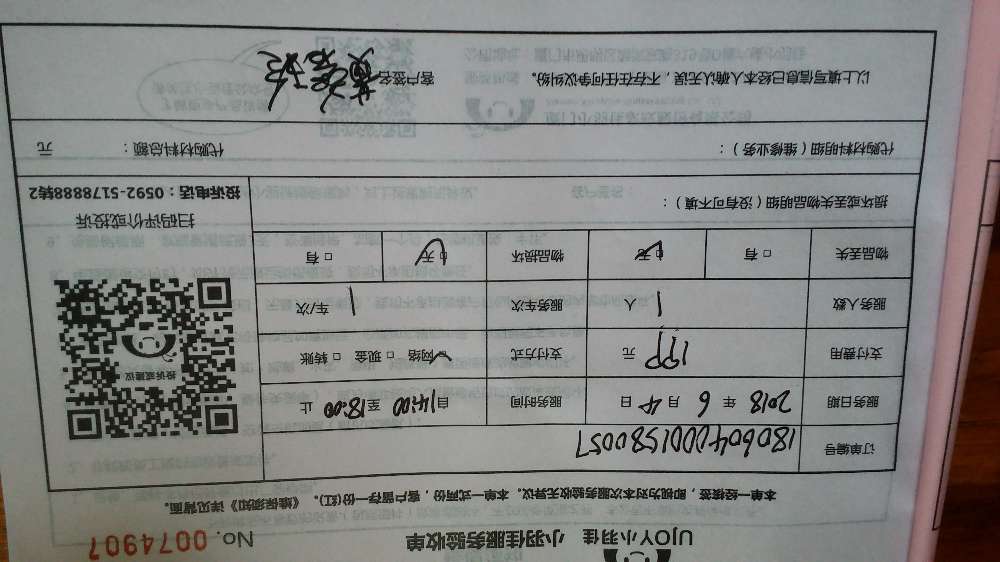 UJOY小羽佳 小羽佳服务验收单 No. 0074907
本单一经签接，即视为对本次服务验收无异议。本单一式两份，客户留存一份(红)。《维保须知》详见背面。
订单编号 1806040001580057
服务日期 2018 年 6 月 4 日 服务时间 自 14:00 至 18:00 止
支付费用 199 元 支付方式 □ 网络 □ 现金 □ 转账
服务人数 1 人 服务车次 1 车/次
物品丢失 □ 有 □ 无 物品损坏 □ 无 □ 有
投诉或建议
损坏或丢失物品明细（没有可不填）：
扫码评价或投诉
投诉电话：0592-5178888转2
代购材料明细（维修业务）： 代购材料总额： 元
以上填写信息已经本人确认无误，不存在任何争议纠纷。 客户签名